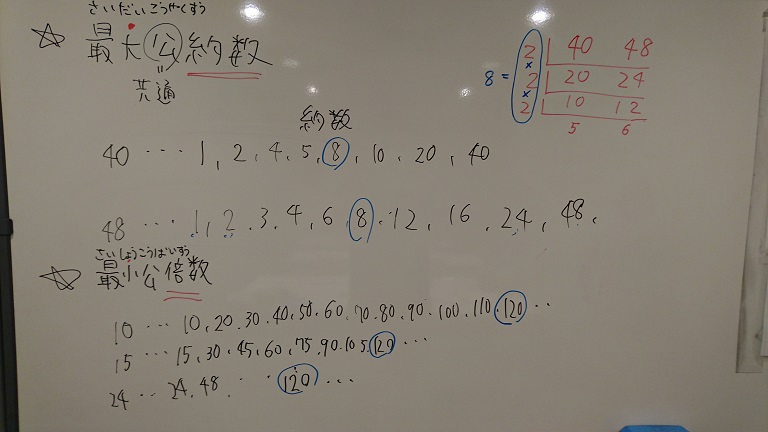 さいだいこうやくすう
☆ 最大公約数
〃
共通
2 40 48
×
8 = 2 20 24
×
2 10 12
5 6
約数
40 … 1, 2, 4, 5, 8, 10, 20, 40
48 … 1, 2, 3, 4, 6, 8, 12, 16, 24, 48,
さいしょうこうばいすう
☆ 最小公倍数
10 … 10, 20, 30, 40, 50, 60, 70, 80, 90, 100, 110, 120 ‥
15 … 15, 30, 45, 60, 75, 90, 105, 120 …
24 … 24, 48, ‥ 120 …